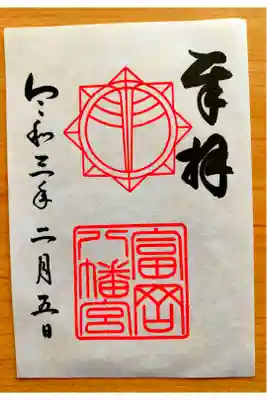 奉拝
富岡
八幡宮
令和三年 二月五日